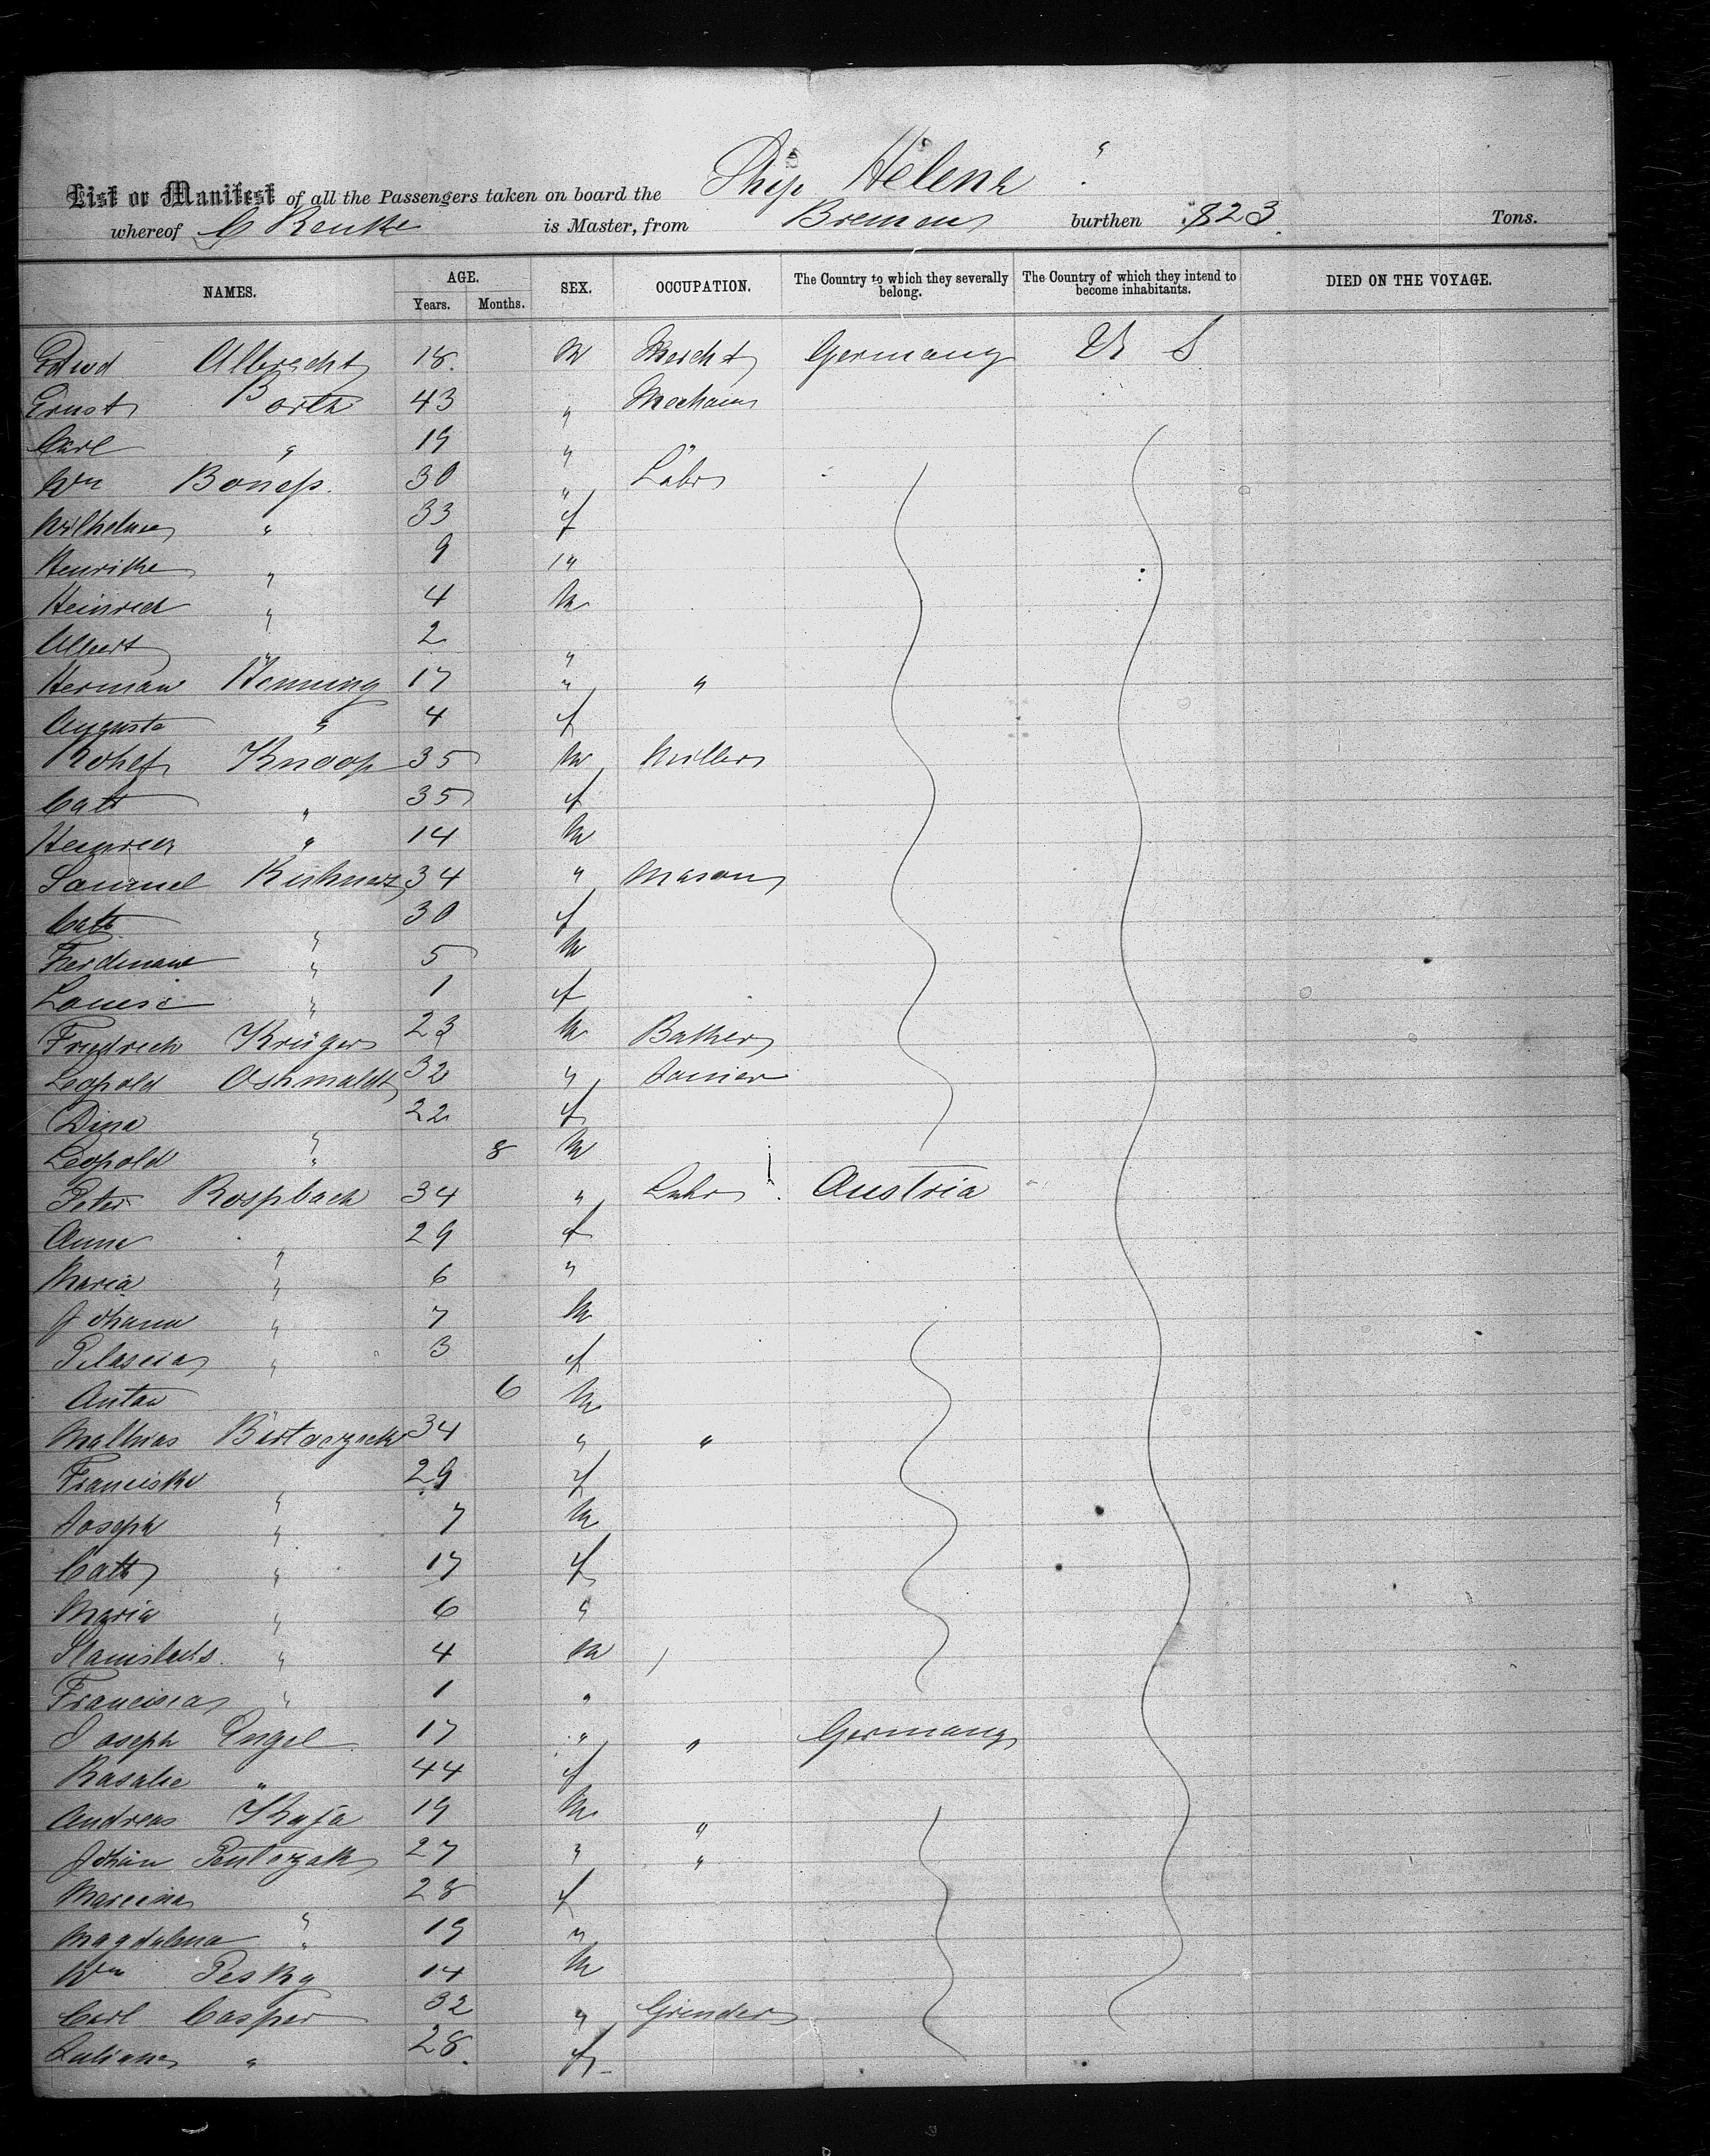 Ship Helene "
List or Manifest of all the Passengers taken on board the
whereof C Renke is Master, from Bremen burthen 823 Tons.
NAMES. AGE. Years. Months. SEX. OCCUPATION. The Country to which they severally belong. The Country of which they intend to become inhabitants. DIED ON THE VOYAGE.
Edwd Albrecht 18. M Mercht Germany U S
Ernst Borth 43 " Mechan
Carl " 19 "
Wm Boness. 30 " Labr
Wilhelmn " 33 f
Henrike " 9 "
Heinrich " 4 M
Albert " 2 "
Herman Henning 17 " "
Auguste " 4 f
Knoop 35 M Miller
Cath " 35 f
Heinrich " 14 M
Samuel 34 " Mason
Cath " 30 f
Ferdinand " 5 M
Louise " 1 f
Friedrich Krüger 23 M Bather
Leopold Oshmaldt 32 " Joiner
Dina " 22 f
Leopold " 8 M
Peter Rossbach 34 " Labr Austria
Anna " 29 f
Maria " 6 "
Johann " 7 M
" 3 f
Anton 6 M
Mathias 34 " "
Franciska " 29 f
Joseph " 7 M
Cath " 17 f
Maria " 6 "
Stanislaus " 4 M
Francisca " 1 "
Joseph Engel 17 " " Germany
Rosalie " 44 f
Andreas Kuja 19 M "
Johan 27 " "
Marcina " 28 f
Magdalena " 19 "
Wm Pesky 14 M
Carl Casper 32 " Grinder
Juliana " 28. f